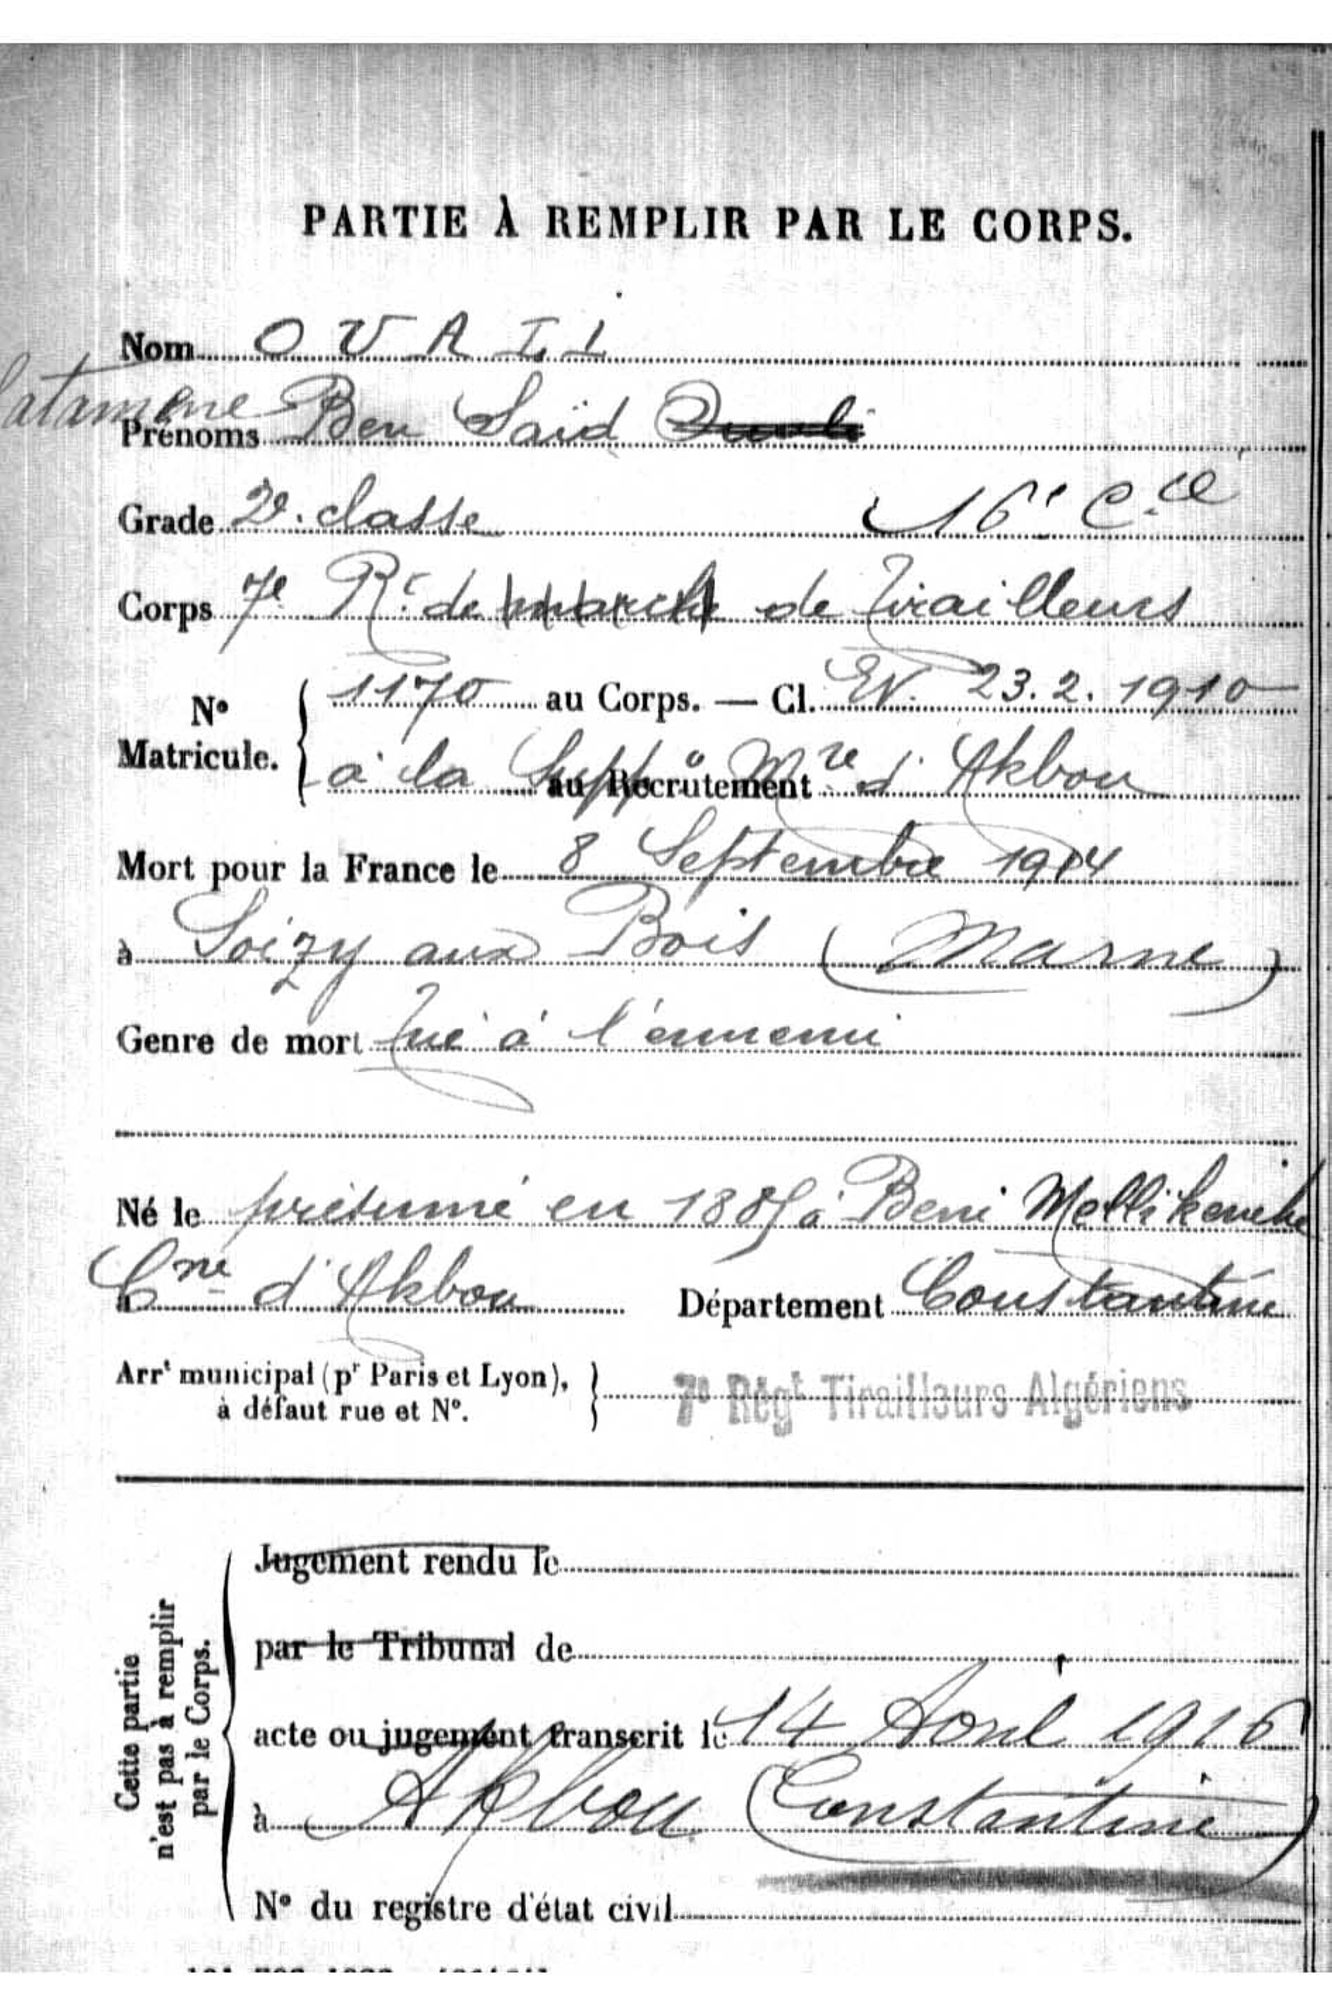 PARTIE À REMPLIR PAR LE CORPS.
Nom O U A L I
Prénoms Ben Saïd
Grade 2e. classe 16e Cie
Corps 7e Rt de marche de Tirailleurs
No Matricule. 1170 au Corps. — Cl. EV. 23.2.1910
à la au Recrutement d'Akbou
Mort pour la France le 8 Septembre 1914
à Soizy aux Bois (Marne)
Genre de mort Tué à l'ennemi
Né le présumé en 188 à Beni
Cne d'Akbou Département Constantine
Arrt municipal (pr Paris et Lyon),
à défaut rue et No.
7e Régt Tirailleurs Algériens
Cette partie
n'est pas à remplir
par le Corps.
Jugement rendu le
par le Tribunal de
acte ou jugement transcrit le 14 Avril 1916
à Akbou (Constantine)
No du registre d'état civil